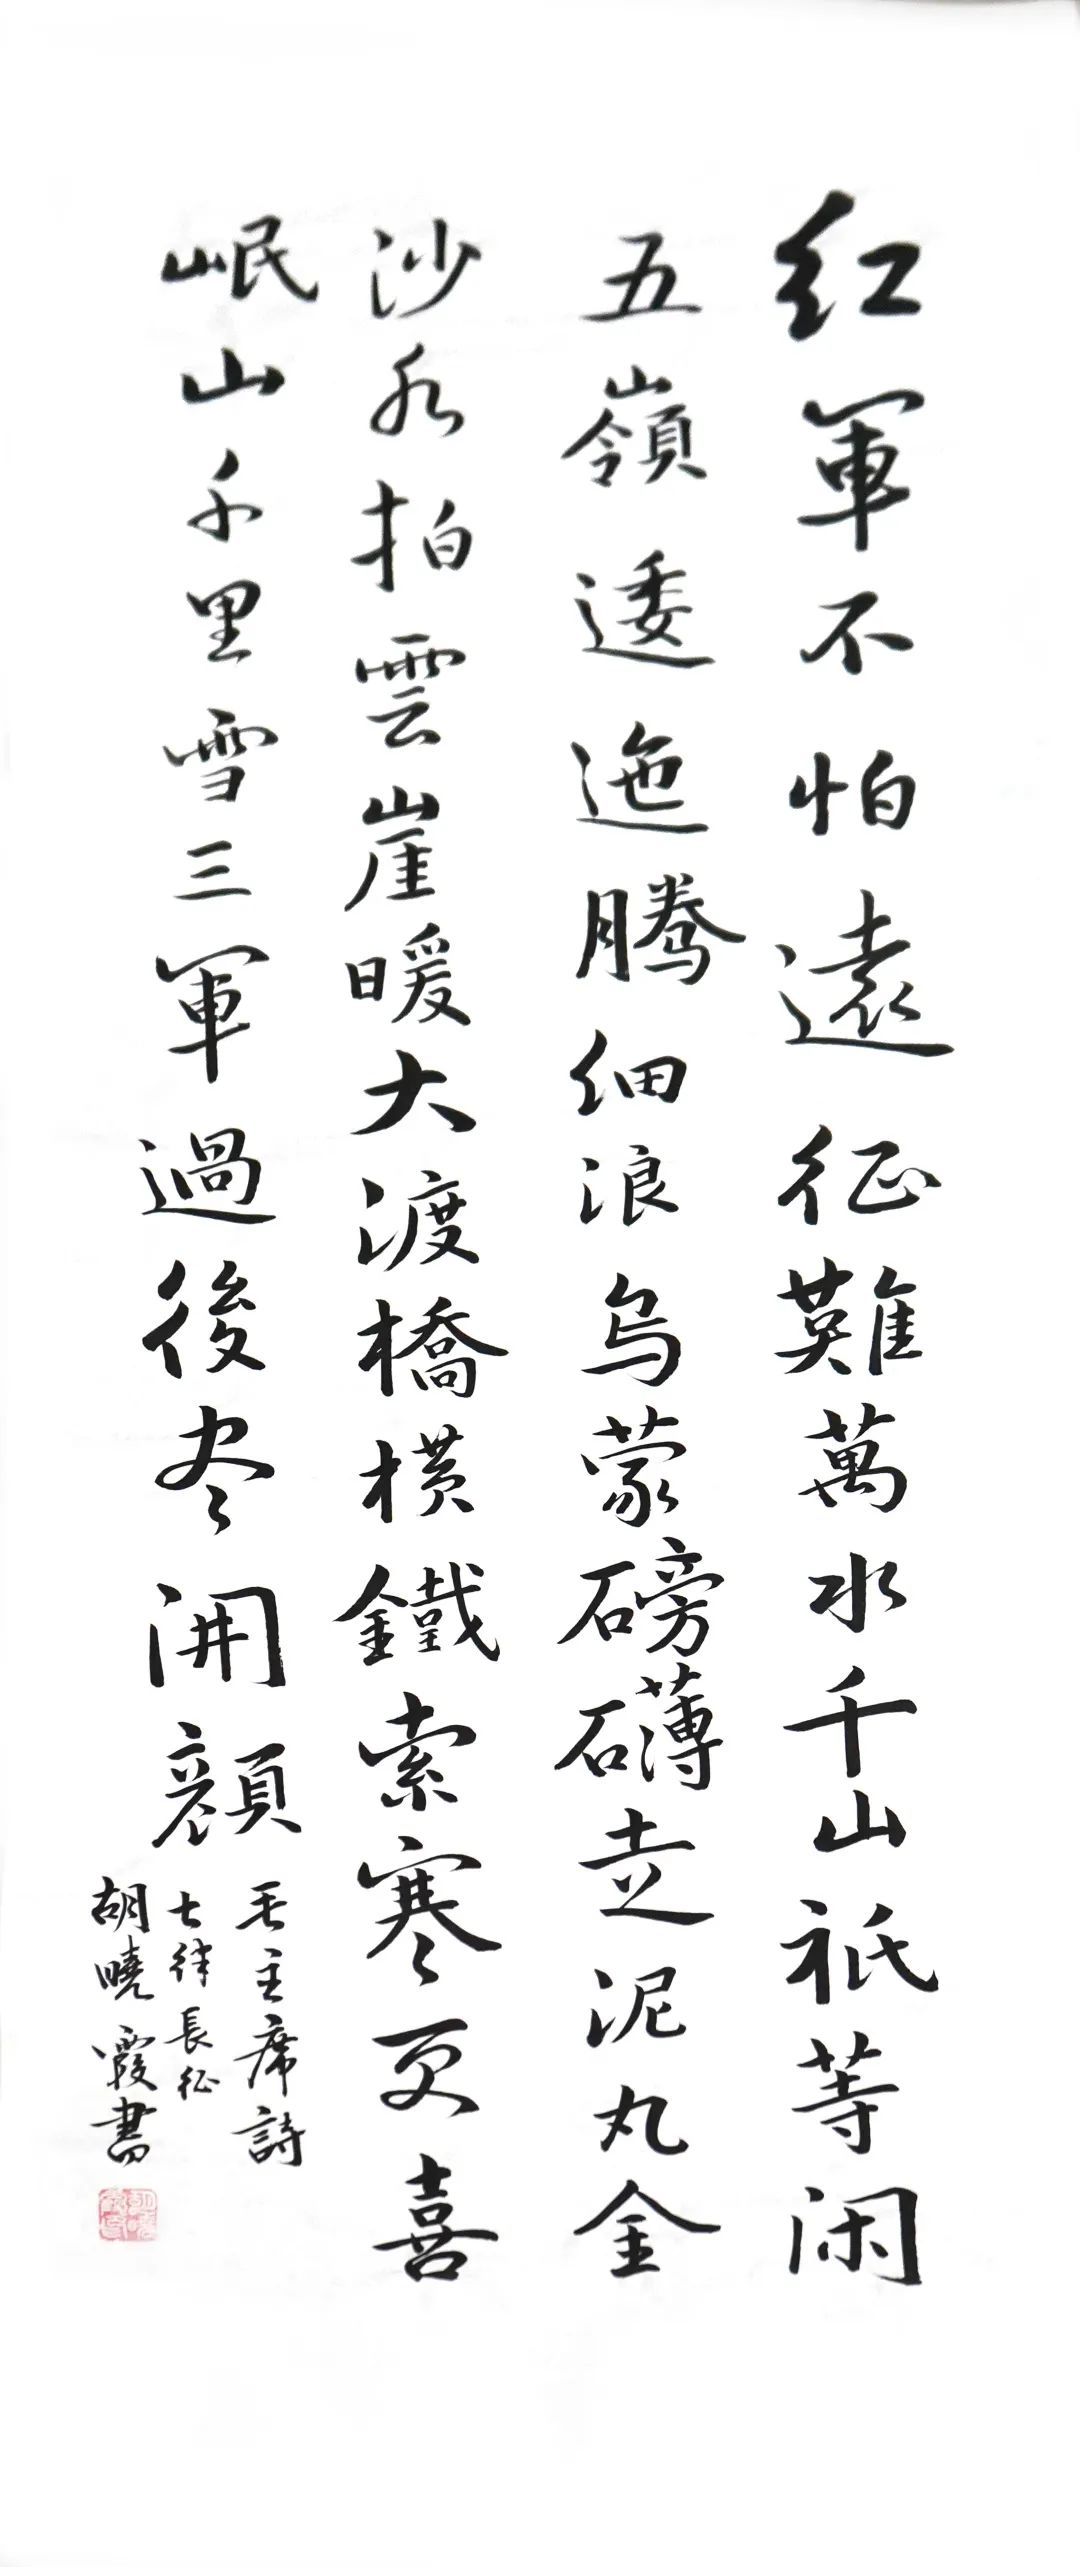 红軍不怕遠征難萬水千山祇等闲
五嶺逶迤腾细浪乌蒙磅礴走泥丸金
沙水拍雲崖暖大渡橋横鐵索寒更喜
岷山千里雪三軍過後尽開顔
毛主席詩
七律長征
胡曉霞書